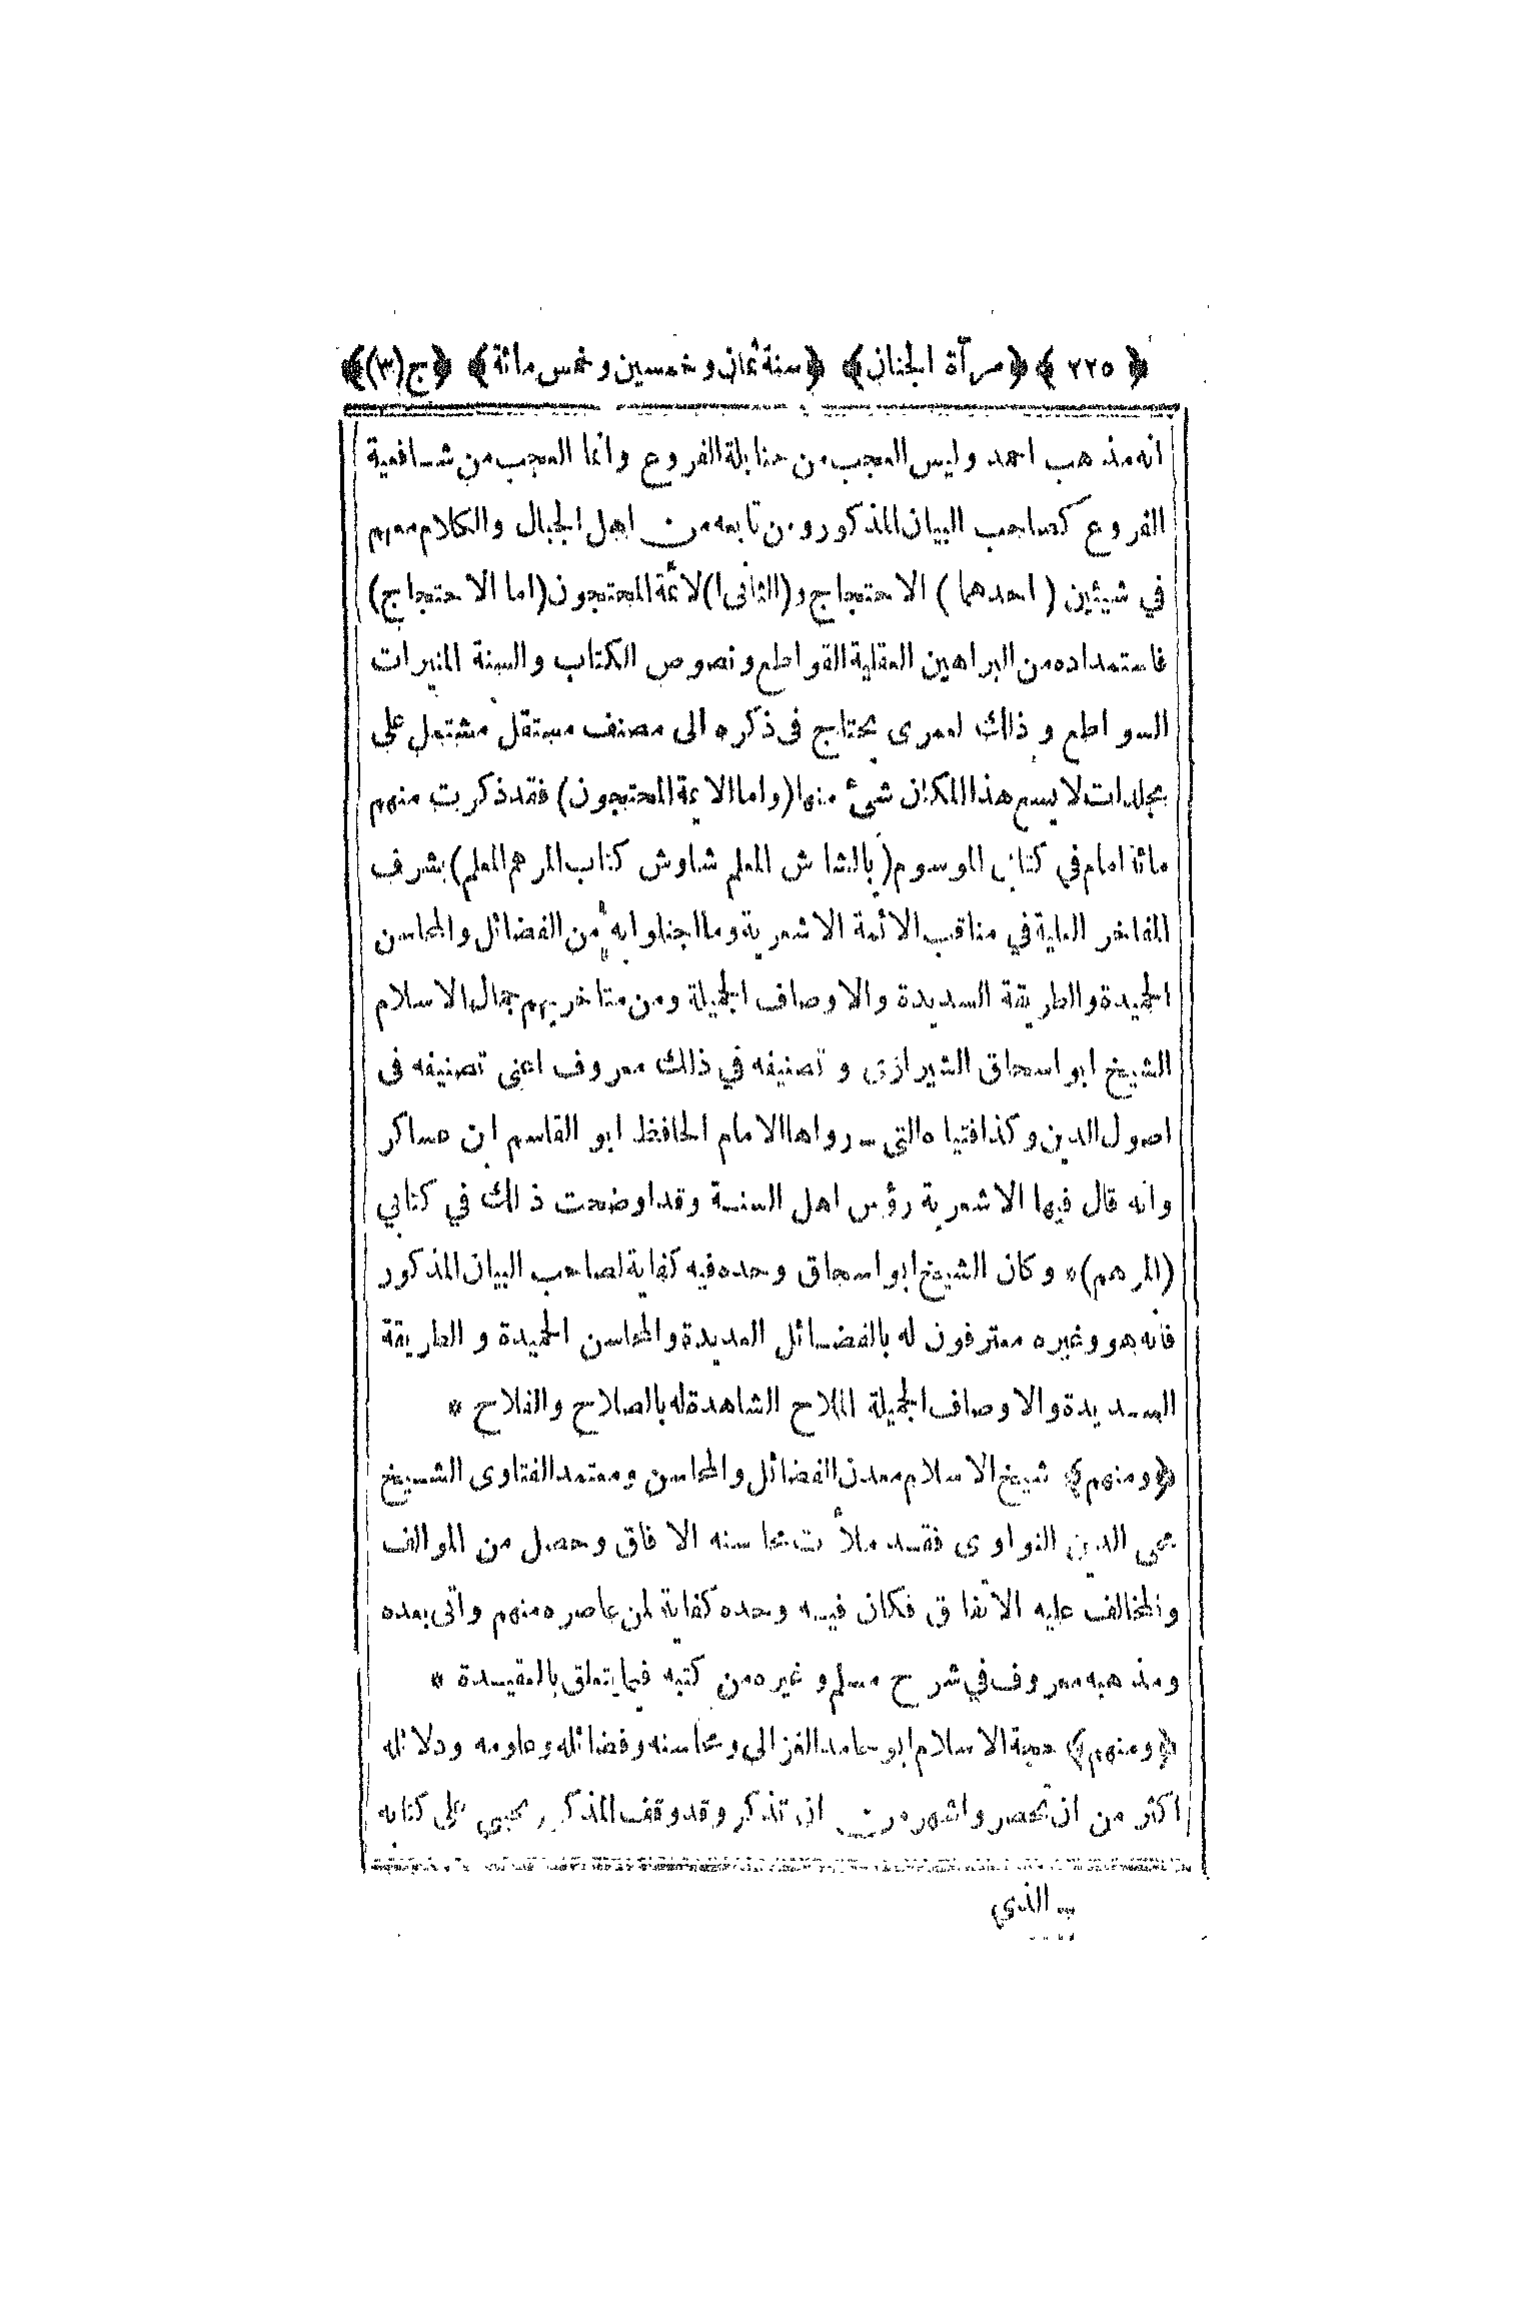 ﴿ ٢٢٥ ﴾ ﴿مرآة الجنان﴾ ﴿سنة ثمان وخمسين وخمس مائة﴾ ﴿ج(٣)﴾
انه مذهب احمد وليس العجب من حنابلة الفروع وانما العجب من شافعية
الفروع كصاحب البيان المذكور ومن تابعه من اهل الجبال والكلام معهم
في شيئين (احدهما) الاحتجاج و(الثانى) الائمة المحتجون (اما الاحتجاج)
فاستمداده من البراهين العقلية القواطع ونصوص الكتاب والسنة المنيرات
السواطع وذلك لعمرى يحتاج فى ذكره الى مصنف مستقل مشتمل على
مجلدات لا يسع هذا المكان شئ منها (واما الائمة المحتجون) فقد ذكرت منهم
مائة امام في كتابى الموسوم (بالشاش المعلم شاوش كتاب المرهم المعلم) بشرف
المفاخر العلية في مناقب الائمة الاشعرية وما اجتلوا به من الفضائل والمحاسن
الحميدة والطريقة السديدة والاوصاف الجميلة ومن متاخريهم جمال الاسلام
الشيخ ابو اسحاق الشيرازى وتصنيفه في ذلك معروف اعنى تصنيفه فى
اصول الدين وكذا فتياه التى رواها الامام الحافظ ابو القاسم ابن عساكر
وانه قال فيها الاشعرية رؤس اهل السنة وقد اوضحت ذلك في كتابي
(المرهم)* وكان الشيخ ابو اسحاق وحده فيه كفاية لصاحب البيان المذكور
فانه هو وغيره معترفون له بالفضائل العديدة والمحاسن الحميدة والطريقة
السديدة والاوصاف الجميلة الملاح الشاهدة له بالصلاح والفلاح *
﴿ومنهم﴾ شيخ الاسلام معدن الفضائل والمحاسن ومعتمد الفتاوى الشيخ
محى الدين النواوى فقد ملأت محاسنه الافاق وحصل من الموالف
والمخالف عليه الاتفاق فكان فيه وحده كفاية لمن عاصره منهم واتى بعده
ومذهبه معروف في شرح مسلم وغيره من كتبه فيما يتعلق بالعقيدة *
﴿ومنهم﴾ حجة الاسلام ابو حامد الغزالى ومحاسنه وفضائله وعلومه ودلائله
اكثر من ان تحصر واشهر من ان تذكر وقد وقف المذكور يحيى على كتابه
الذي